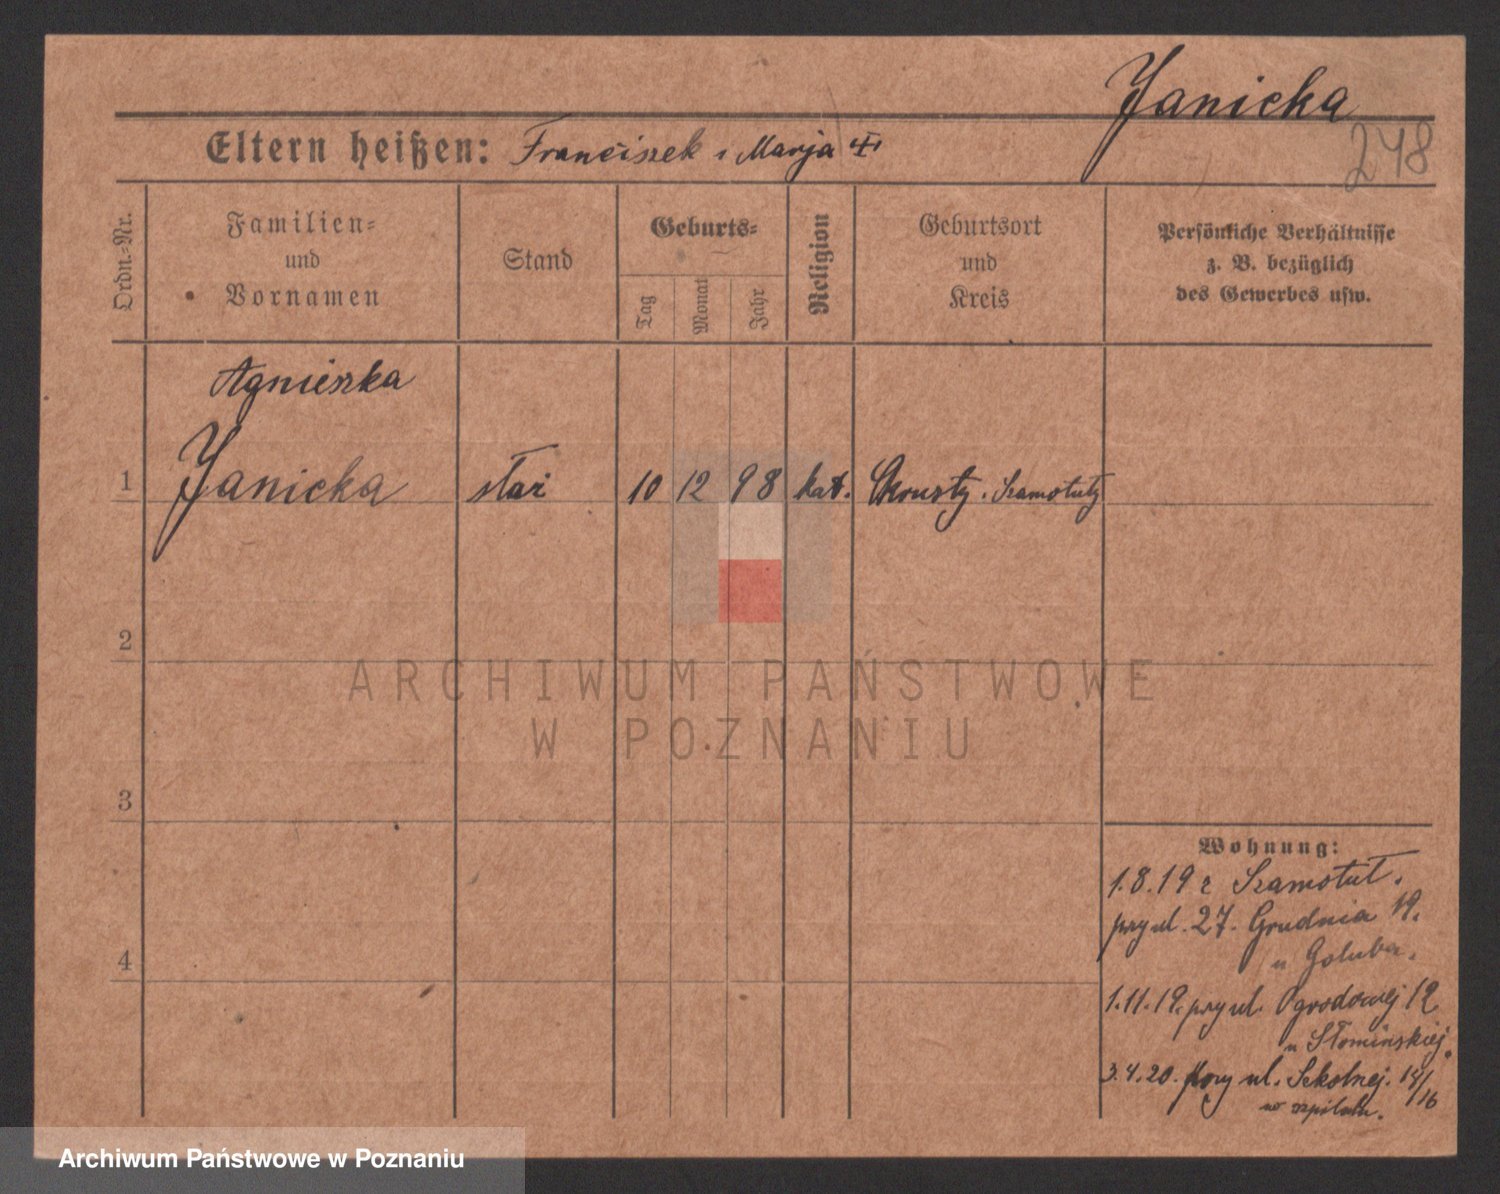 Janicka
Eltern heißen: Franciszek i Marja
248
Ordn.-Nr.
Familien-
und
Vornamen
Stand
Geburts-
Tag
Monat
Jahr
Religion
Geburtsort
und
Kreis
Persönliche Verhältnisse
z. B. bezüglich
des Gewerbes usw.
Agnieszka
1 Janicka 10 12 98 kat. Szamotuły
2
3
4
Wohnung:
1.8.19 z Szamotuł.
przy ul. 27. Grudnia 19.
u Goluba.
1.11.19. przy ul. Ogrodowej 12
u Słomińskiej.
3.4.20. przy ul. Szkolnej. 14/16
w szpitalu.
ARCHIWUM PAŃSTWOWE
W POZNANIU
Archiwum Państwowe w Poznaniu